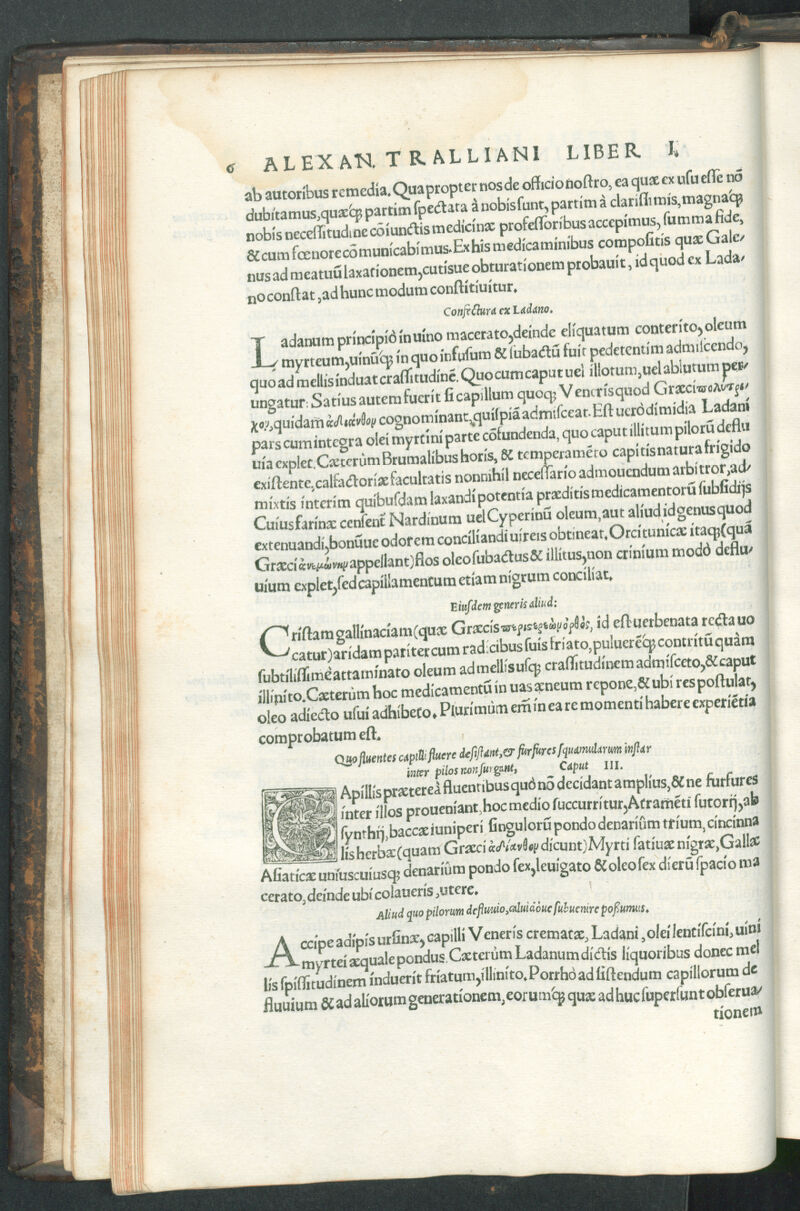 6 ALEXAN. TRALLIANI LIBER I.
ab autoribus remedia. Quapropter nos de officio nostro, ea quæ ex usu esse nõ
dubitamus, quæq́; partim spectata à nobis sunt, partim à clarissimis, magnaq́;
nobis necessitudine cõiunctis medicinæ professoribus accepimus, summa fide,
& cum fœnore cõmunicabimus. Ex his medicaminibus compositis quæ Gale/
nus ad meatuũ laxationem, cutisue obturationem probauit, id quod ex Lada/
no constat, ad hunc modum constitiuitur.
Confectura ex Ladano.
Ladanum principiò in uino macerato, deinde eliquatum conterito, oleum
myrteum, uinũq́; in quo infusum & subactũ fuit pedetentim admiscendo,
quo ad mellis induat crassitudinē. Quo cum caput uel illotum, uel ablutum per/
ungatur. Satius autem fuerit si capillum quoq; Veneris quod Græci πολύτρι/
χον, quidam ἀδίανθον cognominant, quispiã admisceat. Est uerò dimidia Ladani
pars cum integra olei myrtini parte cõfundenda, quo caput illitum pilorũ deflu
uia explet. Cæterùm Brumalibus horis, & temperamẽto capitis natura frigido
existente, calfactoriæ facultatis nonnihil necessario admouendum arbitror, ad/
mixtis interim quibusdam laxandi potentia præditis medicamentorũ subsidijs
Cuius farinæ censent Nardinum uel Cyperinũ oleum, aut aliud id genus quod
extenuandi, bonũue odorem conciliandi uireis obtineat. Orci tunicæ itaq;(quã
Græci ἀνεμώνην appellant) flos oleo subactus & illitus, non crinium modò deflu/
uium explet, sed capillamentum etiam nigrum conciliat.
Eiusdem generis aliud:
Cristam gallinaciam (quæ Græcis περιστερεὼν ὀρθὸς, id est uerbenata recta uo
catur) aridam pariter cum radicibus suis friato, puluerẽq́; contritũ quàm
subtilissimè attaminato oleum ad mellis usq; crassitudinem admisceto, & caput
illinito. Cæterùm hoc medicamentũ in uas æneum repone, & ubi res postulat,
oleo adiecto usui adhibeto. Plurimùm em̃ in ea re momenti habere experiẽtia
comprobatum est.
Quo fluentes capilli fluere desistant, & furfures squamularum instar
inter pilos non surgant, Caput III.
CApillis prætereà fluentibus quò nõ decidant amplius, & ne furfures
inter illos proueniant, hoc medio succurritur, Atramẽti sutorij, ab
synthij, baccæ iuniperi singulorũ pondo denariûm trium, cincinna
lis herbæ (quam Græci ἀδίανθον dicunt) Myrti satiuæ nigræ, Gallæ
Asiaticæ uniuscuiusq; denariûm pondo sex, leuigato & oleo sex dierũ spacio ma
cerato, deinde ubi colaueris, utere.
Aliud quo pilorum defluuio, caluicioue subuenire possumus.
Accipe adipis ursinæ, capilli Veneris crematæ, Ladani, olei lentiscini, uini
myrtei æquale pondus. Cæterùm Ladanum dictis liquoribus donec mel
lis spissitudinem induerit friatum, illinito. Porrhò ad sistendum capillorum de
fluuium & ad aliorum generationem, eorumq́; quæ adhuc supersunt obserua/
tionem